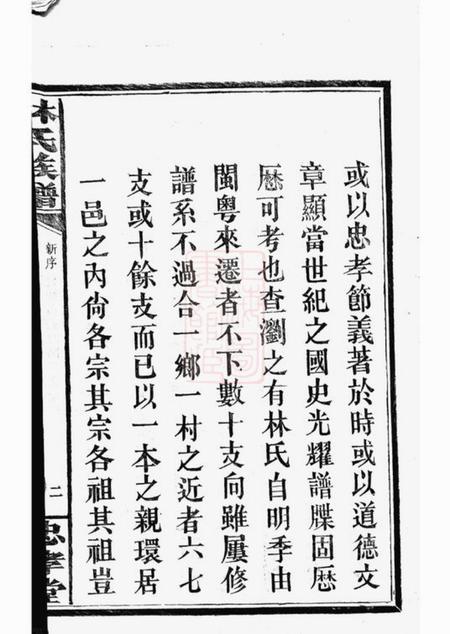 或以忠孝節義著於時或以道德文
章顯當世紀之國史光耀譜牒固歷
歷可考也查瀏之有林氏自明季由
閩粵來遷者不下數十支向雖屢修
譜系不過合一鄉一村之近者六七
支或十餘支而已以一本之親環居
一邑之內尙各宗其宗各祖其祖豈
林氏族譜
新序
二
忠孝堂